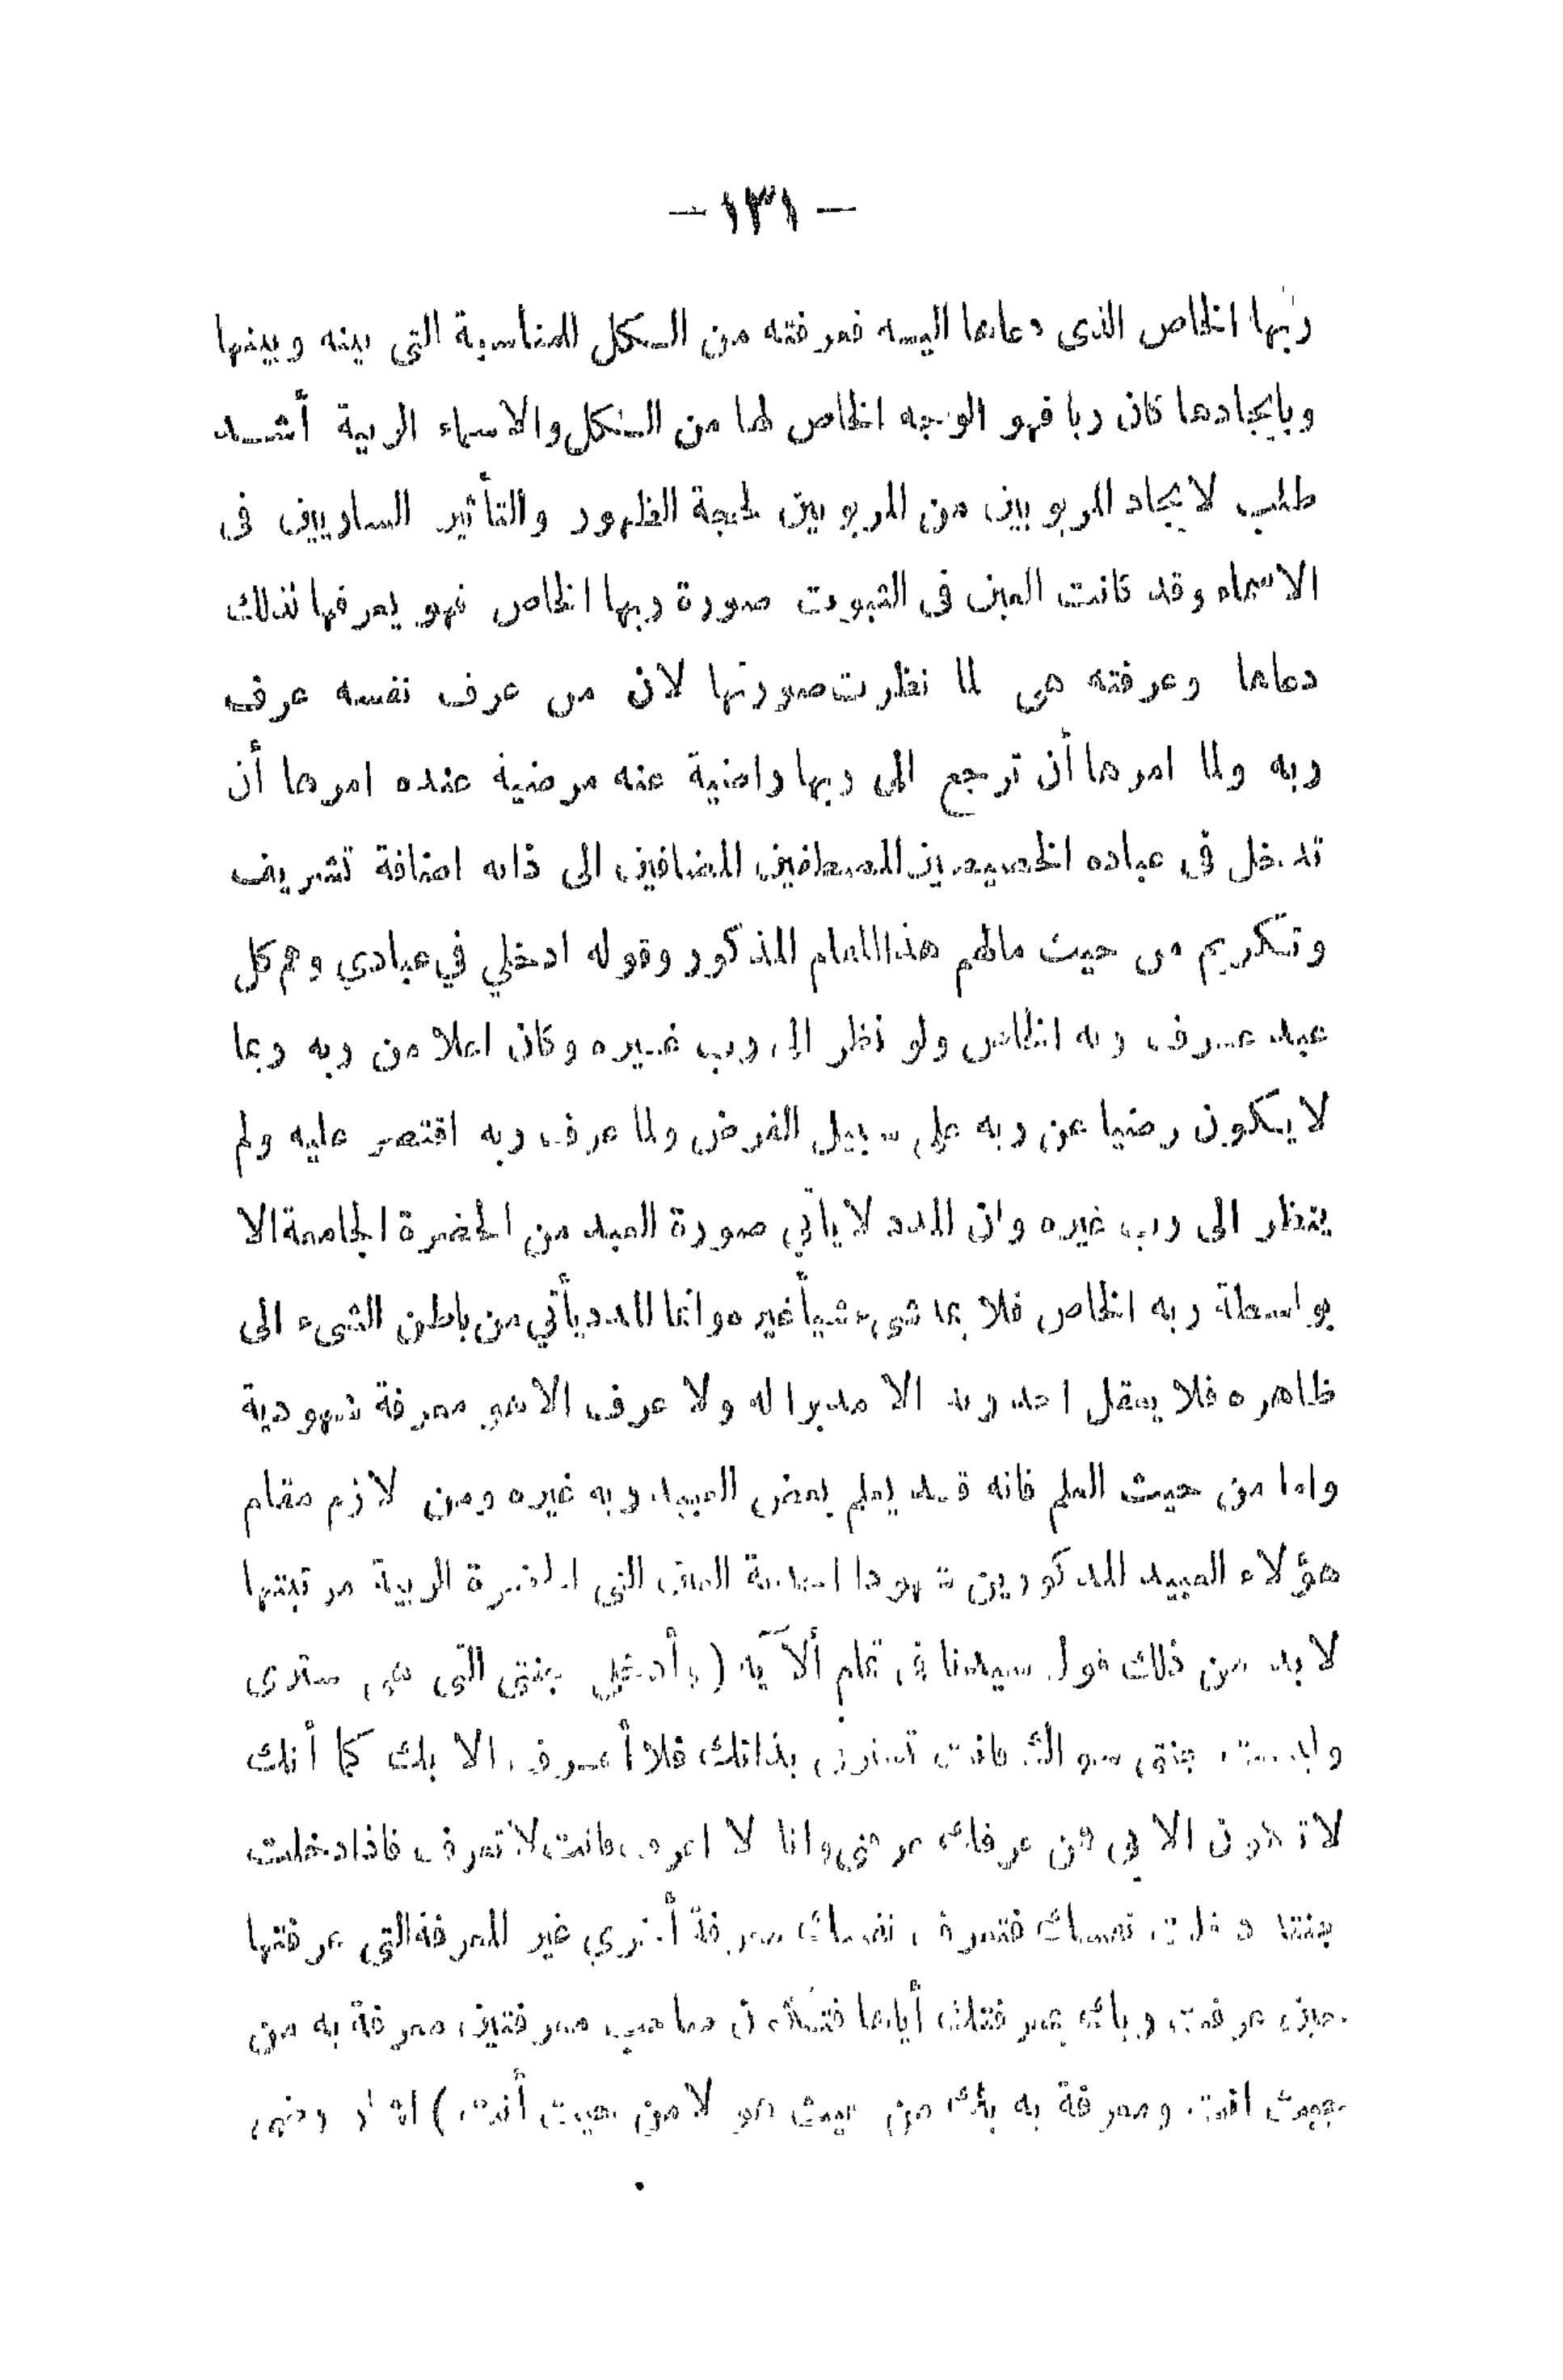 — ١٣١ —
ربها الخاص الذى دعاها اليه فعرفته من الكل للمناسبة التى بينه وبينها
وبايجادها كان ربا فهو الوجه الخاص لها من الكل والاسماء الربية أشد
طلب لايجاد المربوبين من المربوبين لمحبة الظهور والتأثير الساريين فى
الاسماء وقد كانت العين فى الثبوت صورة ربها الخاص فهو يعرفها لذلك
دعاها وعرفته هى لما نظرت صورتها لان من عرف نفسه عرف
ربه ولما امرها أن ترجع الى ربها راضية عنه مرضية عنده امرها أن
تدخل فى عباده المصطفين المضافين الى ذاته اضافة تشريف
وتكريم من حيث مالهم هذا المقام المذكور وقوله ادخلي في عبادي وهم كل
عبد عرف ربه الخاص ولو نظر الى رب غيره وكان اعلا من ربه ربما
لايكون رضيا عن ربه على سبيل الفرض ولما عرف ربه اقتصر عليه ولم
ينظر الى رب غيره وان المدد لايأتي صورة العبد من الحضرة الجامعة الا
بواسطة ربه الخاص فلا شىء شيأ غيره وانما المدد يأتي من باطن الشىء الى
ظاهره فلا يعقل احد ربه الا مدبرا له ولا عرف الا هو معرفة شهودية
واما من حيث العلم فانه قد يعلم بعض العبيد ربه غيره ومن لازم مقام
هؤلاء العبيد المذكورين شهودا احدية العين التى الحضرة الربية مرتبتها
لابد من ذلك قول سيدنا فى تمام ألآية (وأدخلي جنتي التى هى سترى
وليست جنتى سواك فانت تسترنى بذاتك فلا أعرف الا بك كما أنك
لاتكون الا بي فمن عرفك عرفنى وانا لا اعرف فانت لاتعرف فاذا دخلت
جنته دخلت نفسك فتعرف نفسك معرفة أخري غير المعرفة التى عرفتها
حين عرفت ربك بمعرفتك أياها فتكون صاحب معرفتين معرفة به من
حيث انت ومعرفة به بك من حيث هو لا من حيث أنت) اشار رضى